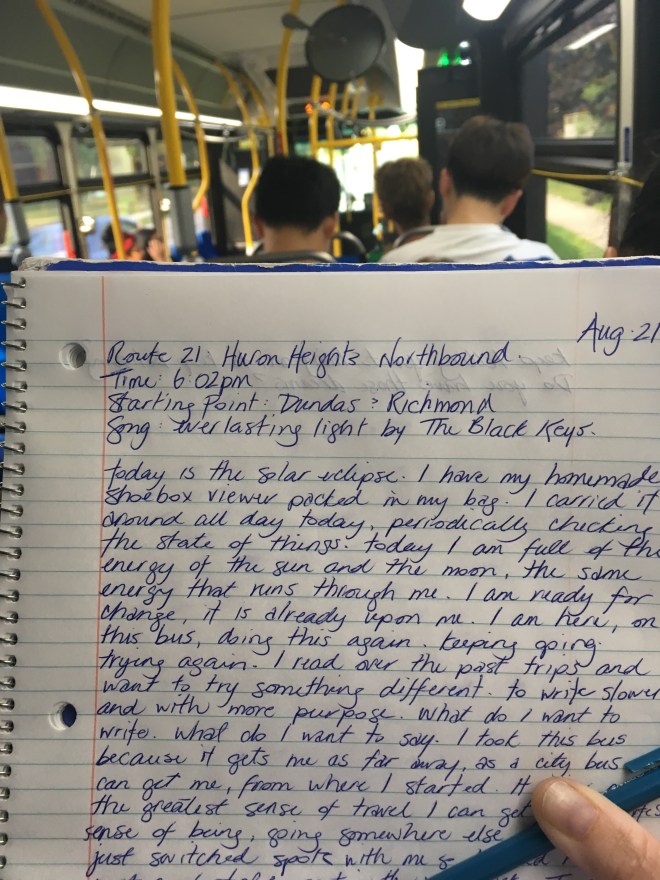 Aug. 21
Route 21: Huron Heights Northbound
Time: 6:02pm
Starting Point: Dundas & Richmond
Song: Everlasting light by The Black Keys.
today is the solar eclipse. I have my homemade
Shoebox viewer packed in my bag. I carried it
around all day today, periodically checking
the state of things. today I am full of the
energy of the sun and the moon, the same
energy that runs through me. I am ready for
change, it is already upon me. I am here, on
this bus, doing this again. keeping going.
trying again. I read over the past trips and
want to try something different. to write slower
and with more purpose. What do I want to
write. What do I want to say. I took this bus
because it gets me as far away, as a city bus
can get me, from where I started. It
the greatest sense of travel I can get
sense of being, going somewhere else
just switched spots with me